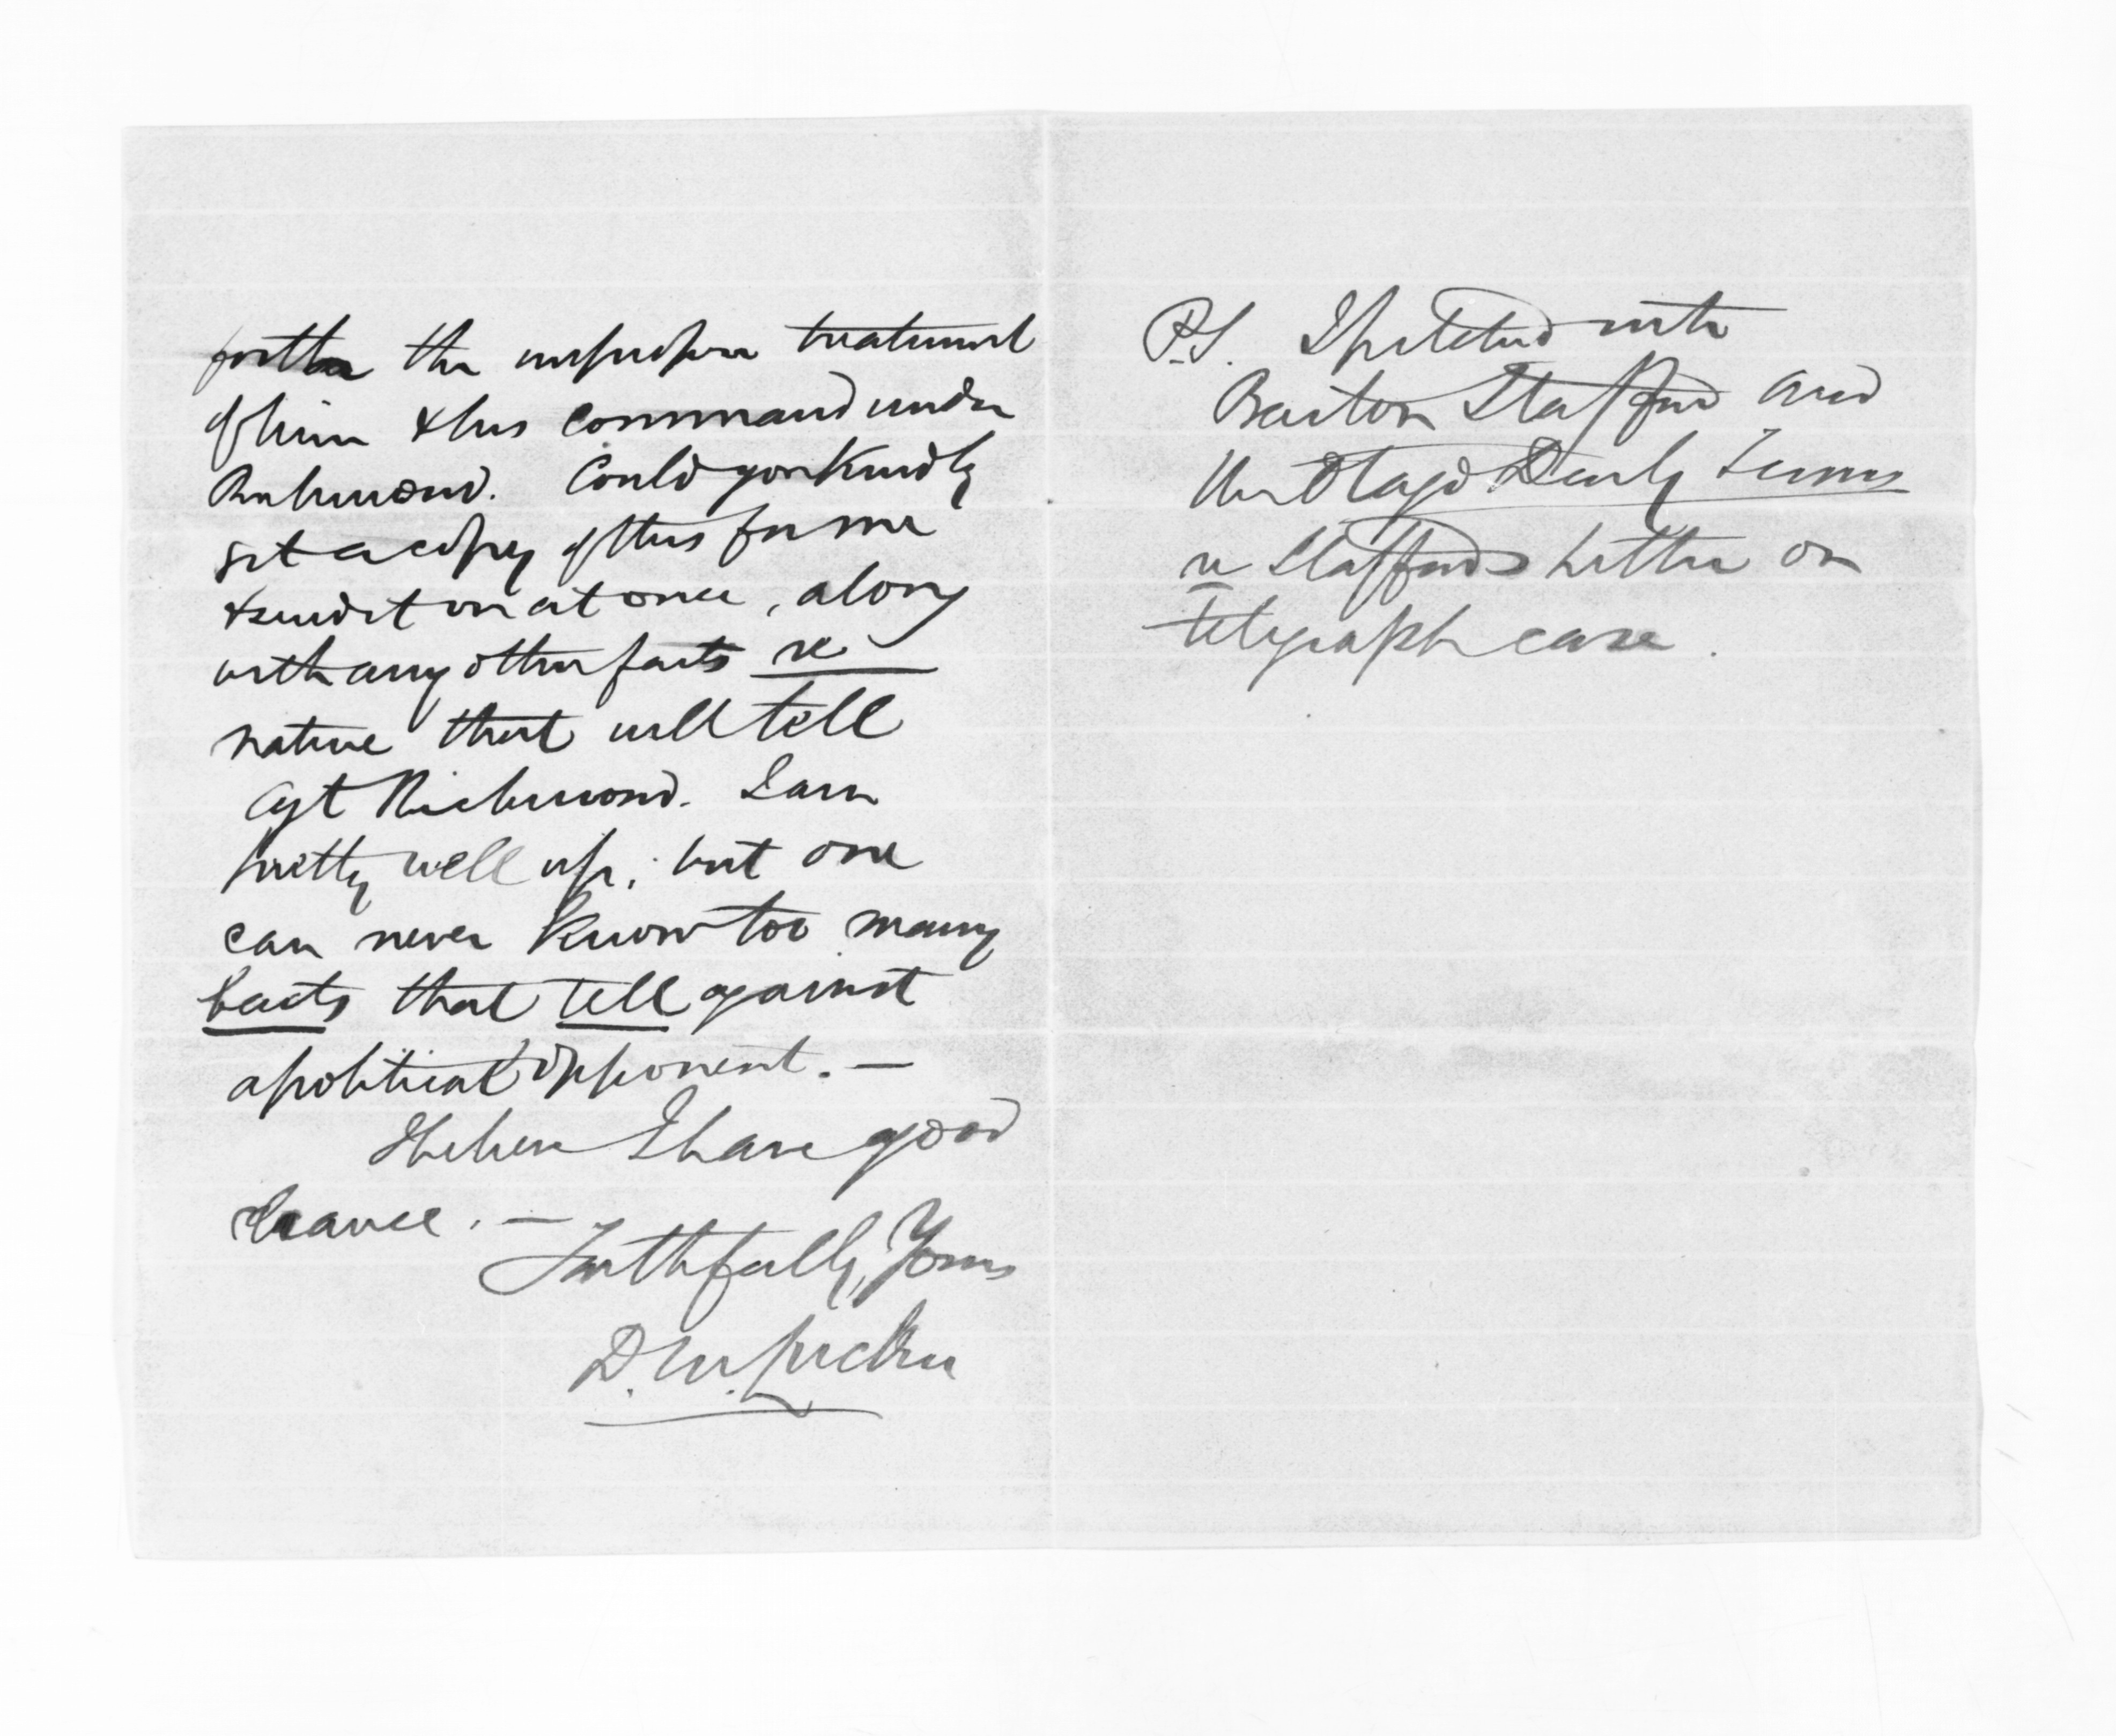 forth the improper treatment
of him & his command under
Richmond. Could you Kindly
get a copy of this for me
& send it on at once, along
with any other facts re
nature that will tell
agt Richmond. I am
pretty well up; but one
can never Know too many
facts that tell against
a political opponent. —
I believe I have good
chance. —
Faithfully Yours
D. M. Luckie
P.S. I pitched into
Barton Stafford and
the Otago Daily Times
re Staffords Letter on
telegraph case.